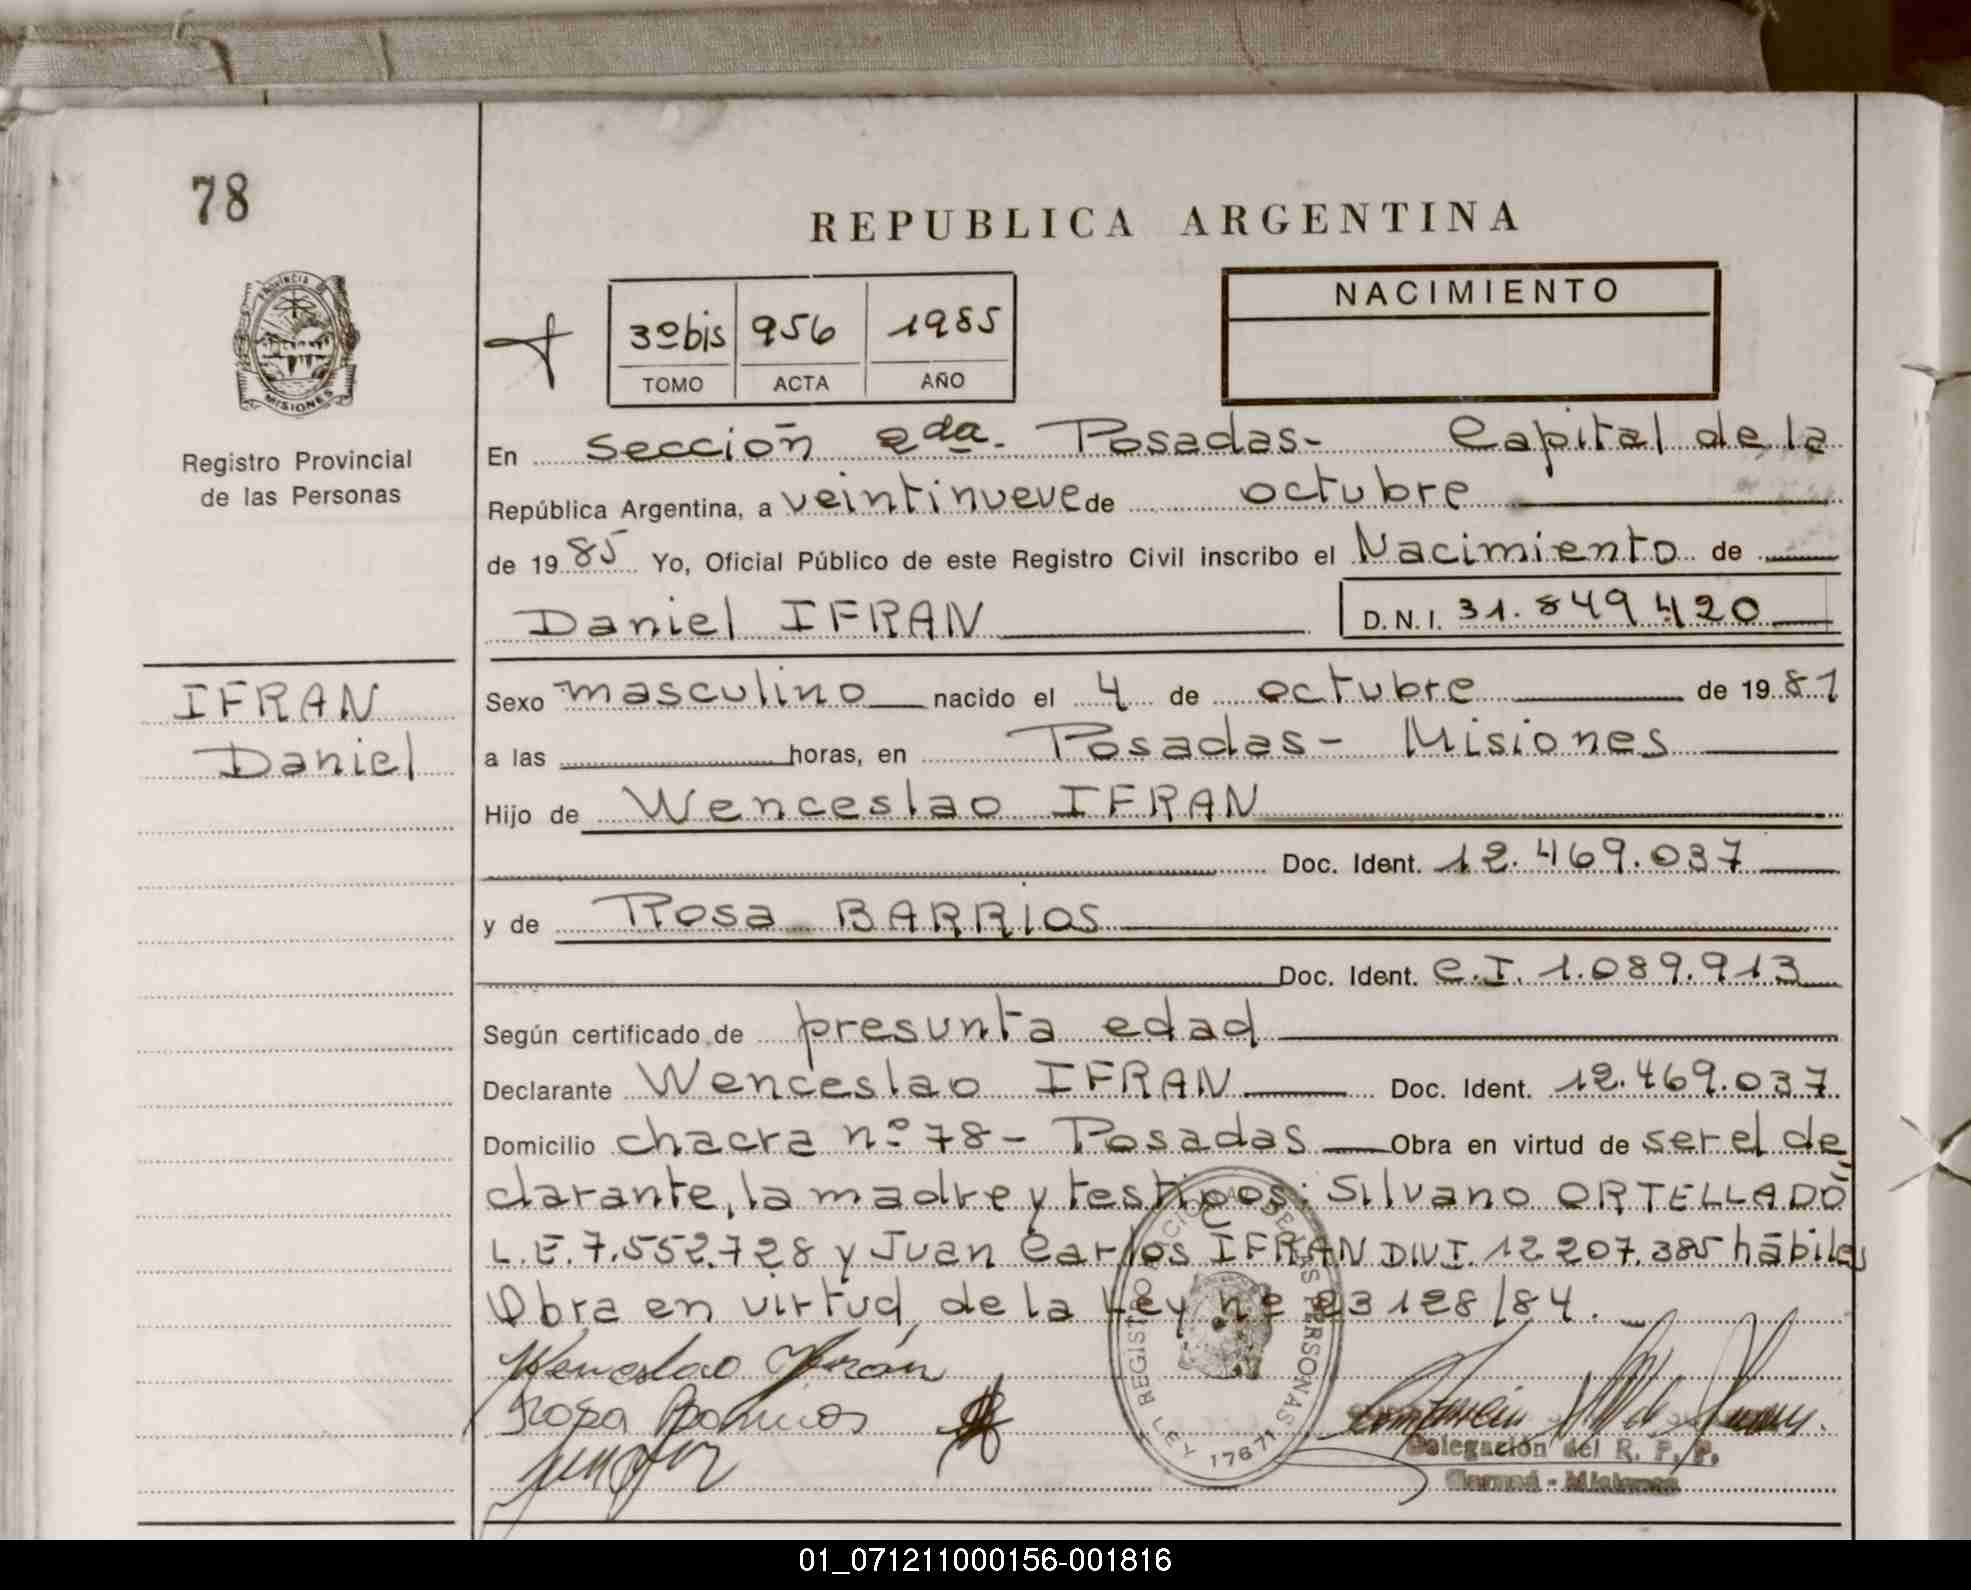 78
REPUBLICA ARGENTINA
PROVINCIA DE
MISIONES
Registro Provincial
de las Personas
3º bis 956 1985
TOMO ACTA AÑO
NACIMIENTO
En Sección 2da. Posadas- Capital de la
República Argentina, a veintinueve de octubre
de 1985 Yo, Oficial Público de este Registro Civil inscribo el Nacimiento de
Daniel IFRAN D.N.I. 31.849.420
IFRAN
Daniel
Sexo masculino nacido el 4 de octubre de 1981
a las horas, en Posadas- Misiones
Hijo de Wenceslao IFRAN
Doc. Ident. 12.469.037
y de Rosa BARRIOS
Doc. Ident. C.I. 1.089.913
Según certificado de presunta edad
Declarante Wenceslao IFRAN Doc. Ident. 12.469.037
Domicilio chacra nº 78- Posadas Obra en virtud de ser el de
clarante, la madre y testigos: Silvano ORTELLADO
L.E. 7.552.728 y Juan Carlos IFRAN DNI. 12 207.385 hábiles
Obra en virtud de la Ley nº 23128/84.
Wenceslao Ifrán
Rosa Barrios
REGISTRO DE LAS PERSONAS
LEY 17671
Delegación del R. P. P.
Misiones
01_071211000156-001816